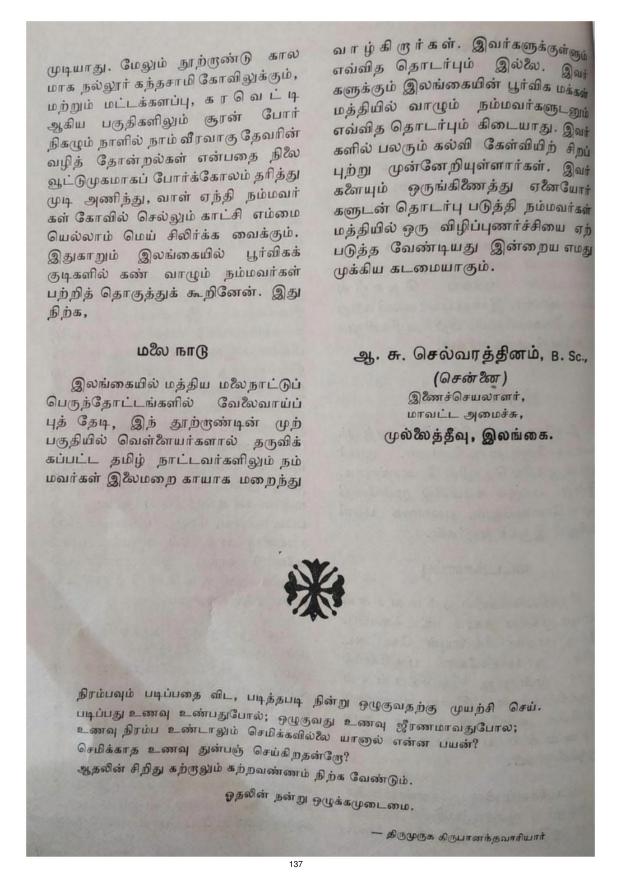 முடியாது. மேலும் நூற்ருண்டு கால
மாக நல்லூர் கந்தசாமி கோவிலுக்கும்,
மற்றும் மட்டக்களப்பு, கரவெட்டி
ஆகிய பகுதிகளிலும் சூரன் போர்
நிகழும் நாளில் நாம் வீரவாகு தேவரின்
வழித் தோன்றல்கள் என்பதை நிலை
வூட்டுமுகமாகப் போர்க்கோலம் தரித்து
முடி அணிந்து, வாள் ஏந்தி நம்மவர்
கள் கோவில் செல்லும் காட்சி எம்மை
யெல்லாம் மெய் சிலிர்க்க வைக்கும்.
இதுகாறும் இலங்கையில் பூர்விகக்
குடிகளில் கண் வாழும் நம்மவர்கள்
பற்றித் தொகுத்துக் கூறினேன். இது
நிற்க,
மலை நாடு
இலங்கையில் மத்திய மலைநாட்டுப்
பெருந்தோட்டங்களில் வேலைவாய்ப்
புத் தேடி, இந் நூற்ருண்டின் முற்
பகுதியில் வெள்ளையர்களால் தருவிக்
கப்பட்ட தமிழ் நாட்டவர்களிலும் நம்
மவர்கள் இலைமறை காயாக மறைந்து
வாழ்கிறார்கள். இவர்களுக்குள்ளும்
எவ்வித தொடர்பும் இல்லை. இவர்
களுக்கும் இலங்கையின் பூர்விக மக்கள்
மத்தியில் வாழும் நம்மவர்களுடனும்
எவ்வித தொடர்பும் கிடையாது. இவர்
களில் பலரும் கல்வி கேள்வியிற் சிறப்
புற்று முன்னேறியுள்ளார்கள். இவர்
களையும் ஒருங்கிணைத்து ஏனையோர்
களுடன் தொடர்பு படுத்தி நம்மவர்கள்
மத்தியில் ஒரு விழிப்புணர்ச்சியை ஏற்
படுத்த வேண்டியது இன்றைய எமது
முக்கிய கடமையாகும்.
ஆ. சு. செல்வரத்தினம், B. Sc.,
(சென்னை)
இணைச்செயலாளர்,
மாவட்ட அமைச்சு,
முல்லைத்தீவு, இலங்கை.
நிரம்பவும் படிப்பதை விட, படித்தபடி நின்று ஒழுகுவதற்கு முயற்சி செய்.
படிப்பது உணவு உண்பதுபோல்; ஒழுகுவது உணவு ஜீரணமாவதுபோல;
உணவு நிரம்ப உண்டாலும் செமிக்கவில்லை யானால் என்ன பயன்?
செமிக்காத உணவு துன்பஞ் செய்கிறதன்றோ?
ஆதலின் சிறிது கற்றாலும் கற்றவண்ணம் நிற்க வேண்டும்.
ஓதலின் நன்று ஒழுக்கமுடைமை.
— திருமுருக கிருபானந்தவாரியார்
137